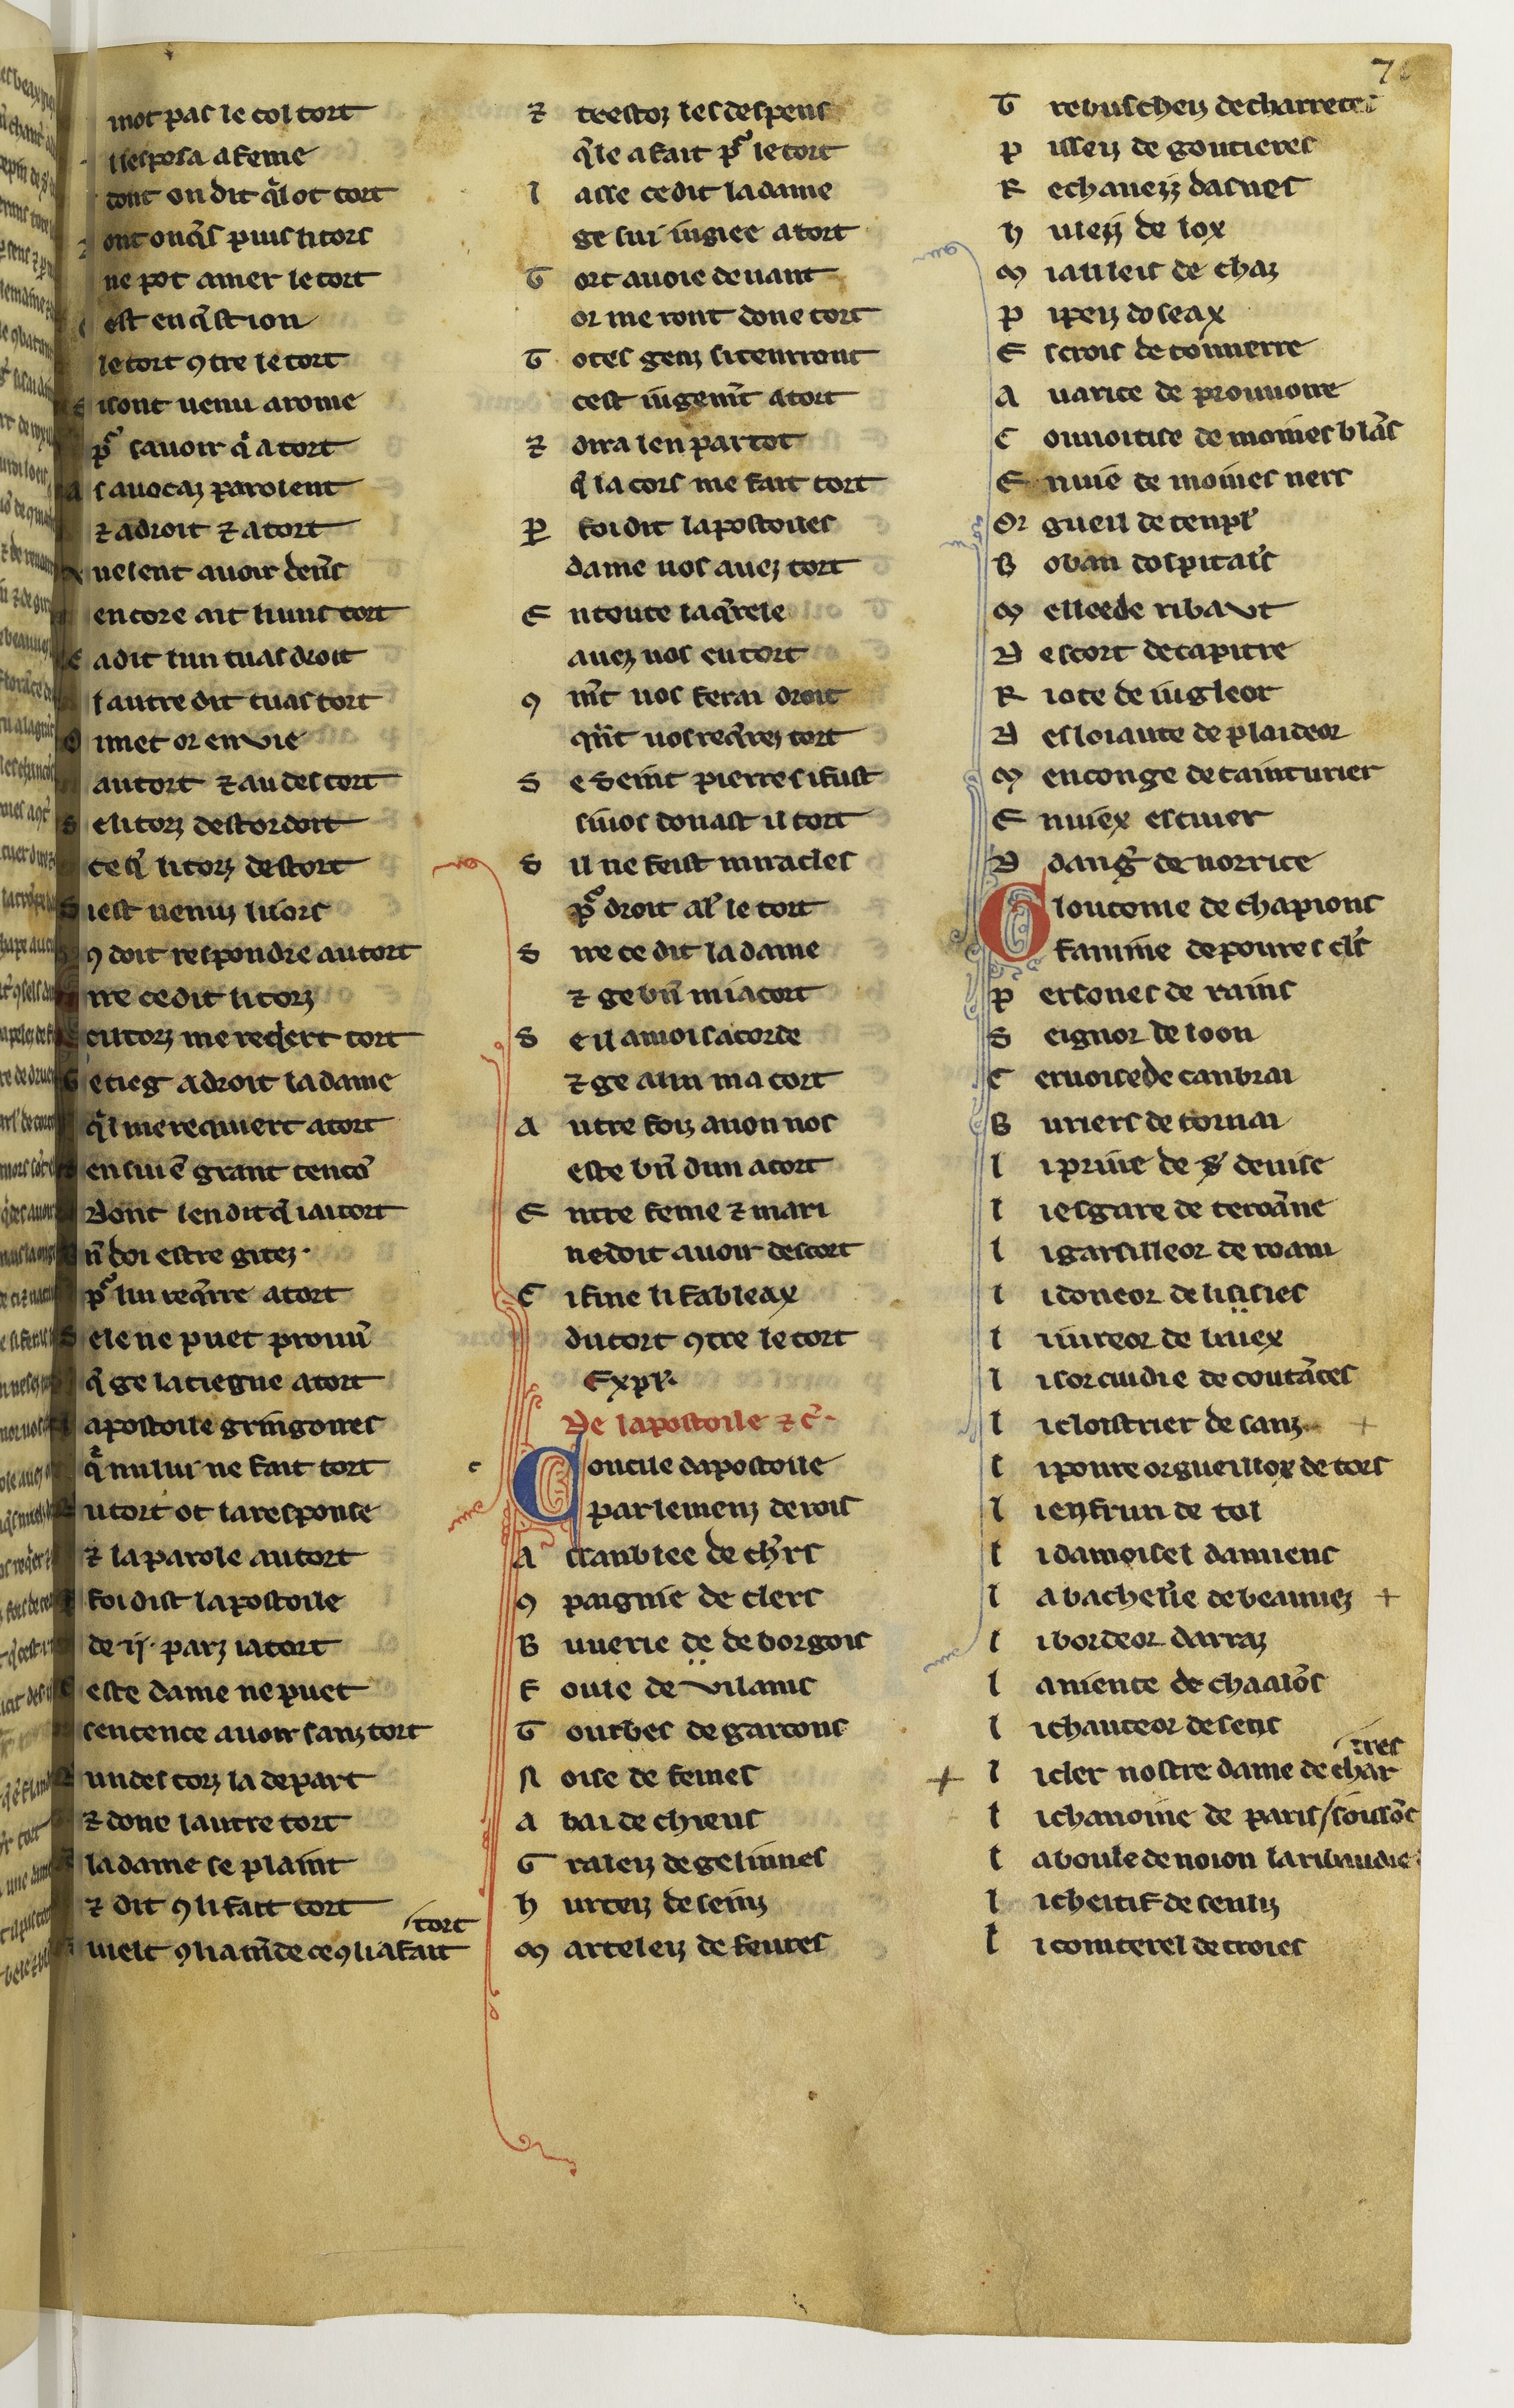 7
mot pas le col tort
il esposa a feme
dont on dit q̉l ot tort
ont onq̃s puis li tors
ne pot amer le tort
est en q̃stion
le tort ꝯtre le tort
il sont uenu a rome
pͬ sauoir q̉ a tort
s auocaz parolent
⁊ a droit ⁊ a tort
uelent auoir den̄s
encore ait li uns tort
a dit lun tu as droit
l autre dit tu as tort
i met or envie
au tort ⁊ au destort
S e li torz destordoit
ce q̃ li torz destort
S i est uenuz li tors
ꝯ doit respondre au tort
S ire ce dit li torz
cil torz me reqiert tort
G e tieg a droit la dame
q̉l me requiert a tort
en sui ē grant tencō
Dont len dit q̃ iai tort
n̄ doi estre gitez ·
pͬ lui req̃rre a tort
S ele ne puet prouũ
q̃ ge la tiegne a tort
apostoile gringoires
q̉ nului ne fait tort
u tort ot la response
⁊ la parole au tort
foi dist lapostoile
de ij · parz ia tort
ceste dame ne puet
sentence auoir sanz tort
un des torz la depart
⁊ done lautre tort
la dame se plaint
⁊ dit ꝯ li fait tort
tort
uielt ꝯ li am̃de ce ꝯ li a fait
⁊ trestoz les despens
q̃le a fait pͬ le tort
l asse ce dit la dame
ge sui iugiee a tort
T ort auoie deuant
or me ront done tort
T otes genz si tenrront
cest iugem̃t a tort
⁊ dira len par tot
q̃ la cors me fait tort
P foi dit lapostoiles
dame uos auez tort
E n toute la q̃rele
auez uos eu tort
ꝯ m̃t uos ferai droit
qñt uos req̃rez tort
S e Seint pierres i fust
si uos donast il tort
S il ne feist miracles
pͬ droit al̉ le tort
S ire ce dit la dame
⁊ ge bñ mi acort
S e il a moi sacorde
⁊ ge a lui ma cort
A utre foiz auon nos
este bñ dun acort
E ntre feme ⁊ mari
ne doit auoir descort
C i fine li fableax
du tort ꝯtre le tort
Expl̉.
De lapostoile ⁊ c̉.
C oncile dapostoile
parlemenz de rois
A ssanblee de ch̉rs
ꝯ paignie de clers
B uuerie de de borgois
F oule de vilains
T ourbes de garcons
N oise de femes
A bai de chiens
G raleiz de gelinnes
h urteiz de seinz
M arteleiz de feures
T rebuscheiz de charretes
P usseiz de goutieres
R echaneiz dasnes
h uleiz de lox
M iaulleis de chaz
P ipeiz doseax
E scrois de tonnerre
A uarice de prouuoire
C onuoitise de moines blãs
E nuie de moines ners
Or gueil de tenpl̉
B oban dospitaĩs
M ellee de ribavt
D escort de capitre
R iote de iugleor
D esloiaute de plaideor
M enconge de tainturier
E nuiex escuier
D dang̉ de norrice
G loutonie de chapions
famine de poures cl̉s
P ersones de rains
S eignor de loon
C eruoise de canbrai
B uriers de tornai
l i prinie de s̉ denise
l i esgare de teroãne
l i garsilleor de roam
l i doneor de lisies
l i iureor de liuiex
l i sorcuidie de coutãces
l i cloistrier de sanz
l i poure orgueillox de tors
l i enfrun de tol
l i damoisel damiens
l a bachel̉ie de beauuez
l i bordeor darraz
l a niente de chaalõs
l i chanteor de sens
tres
l i cler nostre dame de char
l i chanoine de paris / soissõs
l a boule de noion la ribaudie
l i cheitif de senliz
l i conterel de troies